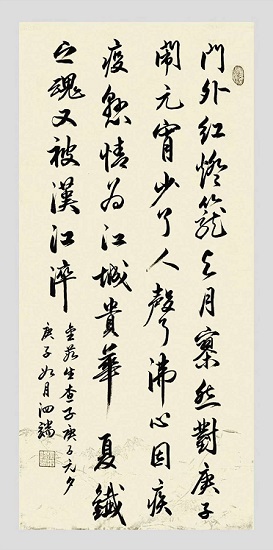 門外紅燈籠与月寮然對庚子
鬧元宵少了人聲沸心因疾
疫懸情为江城貴華夏鐵
之魂又被漢江淬
生查子庚子元夕
庚子如月泗端